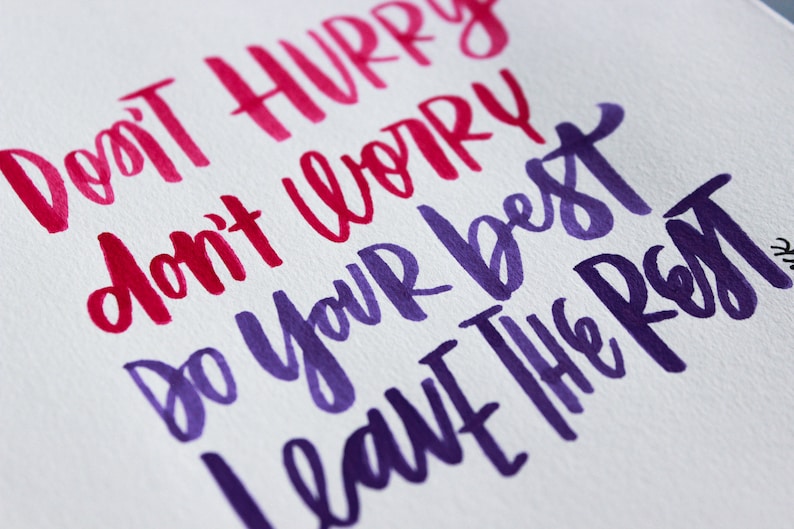 DON'T HURRY
don't worRy
Do your best
Leave the Rest